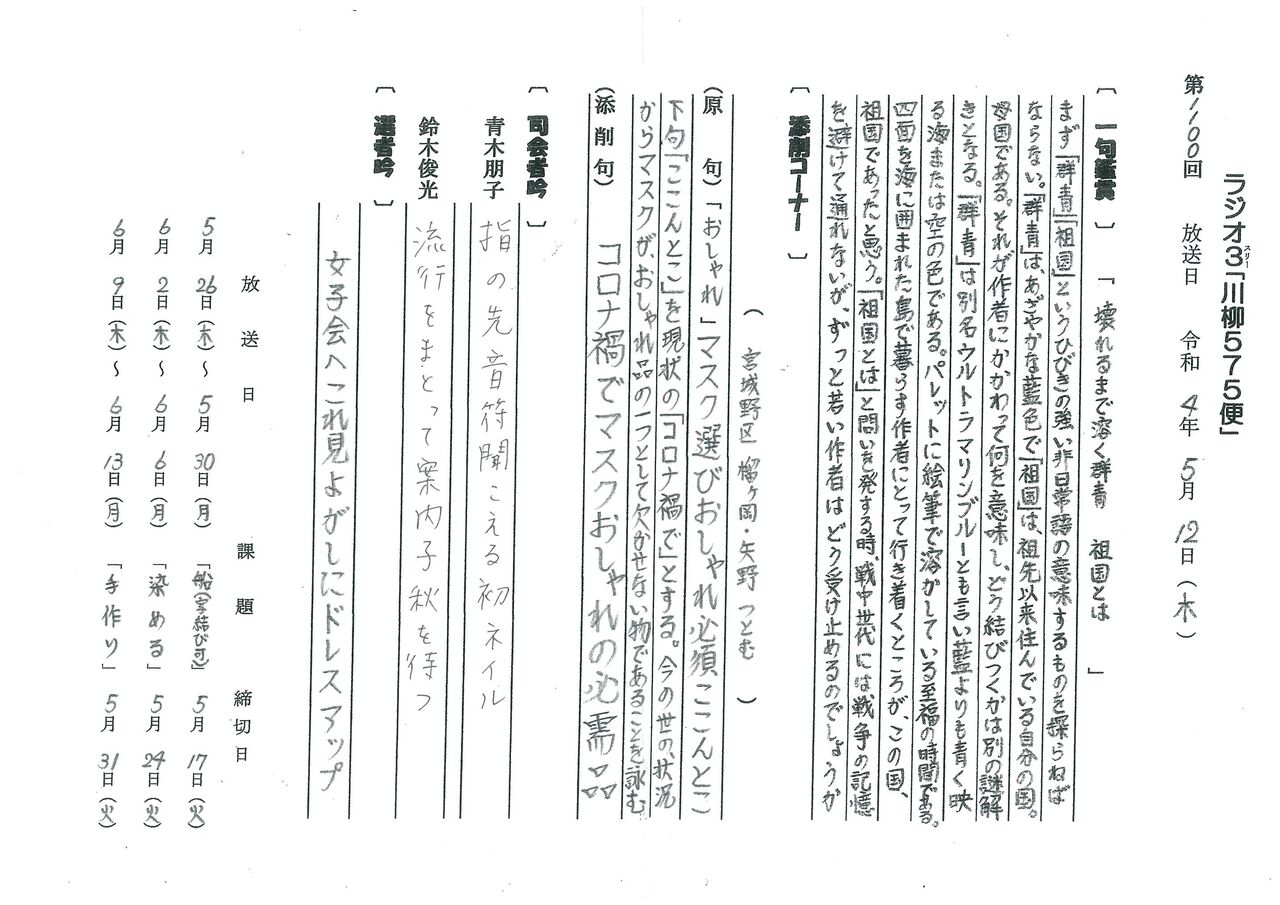 ラジオ3「川柳575便」
スリー
第1100回 放送日 令和 4年 5月 12日(木)
〔一句鑑賞〕「壊れるまで溶く群青 祖国とは 」
まず「群青」「祖国」というひびきの強い非日常語の意味するものを探らねば
ならない。「群青」は、あざやかな藍色で「祖国」は、祖先以来住んでいる自分の国。
母国である。それが作者にかかわって何を意味し、どう結びつくかは別の謎解
きとなる。「群青」は別名ウルトラマリンブルーとも言い藍よりも青く映
る海または空の色である。パレットに絵筆で溶かしている至福の時間である。
四面を海に囲まれた島で暮らす作者にとって行き着くところが、この国、
祖国であったと思う。「祖国とは」と問いを発する時、戦中世代には戦争の記憶
を避けて通れないが、ずっと若い作者はどう受け止めるのでしょうか
〔添削コーナー〕
(宮城野区 榴ヶ岡・矢野 つとむ )
(原 句)「おしゃれ」マスク選びおしゃれ必須ここんとこ
下句「ここんとこ」を現状の「コロナ禍で」とする。今の世の、状況
からマスクが、おしゃれ品の一つとして欠かせない物であることを詠む
(添削句) コロナ禍でマスクおしゃれの必需品
〔司会者吟〕
青木朋子 指の先音符聞こえる初ネイル
鈴木俊光 流行をまとって案内子秋を待つ
〔選者吟〕
女子会へこれ見よがしにドレスアップ
放送日 課題 締切日
5月 26日(木)~ 5月 30日(月) 「船(字結び可)」 5月 17日(火)
6月 2日(木)~ 6月 6日(月) 「染める」 5月 24日(火)
6月 9日(木)~ 6月 13日(月) 「手作り」 5月 31日(火)